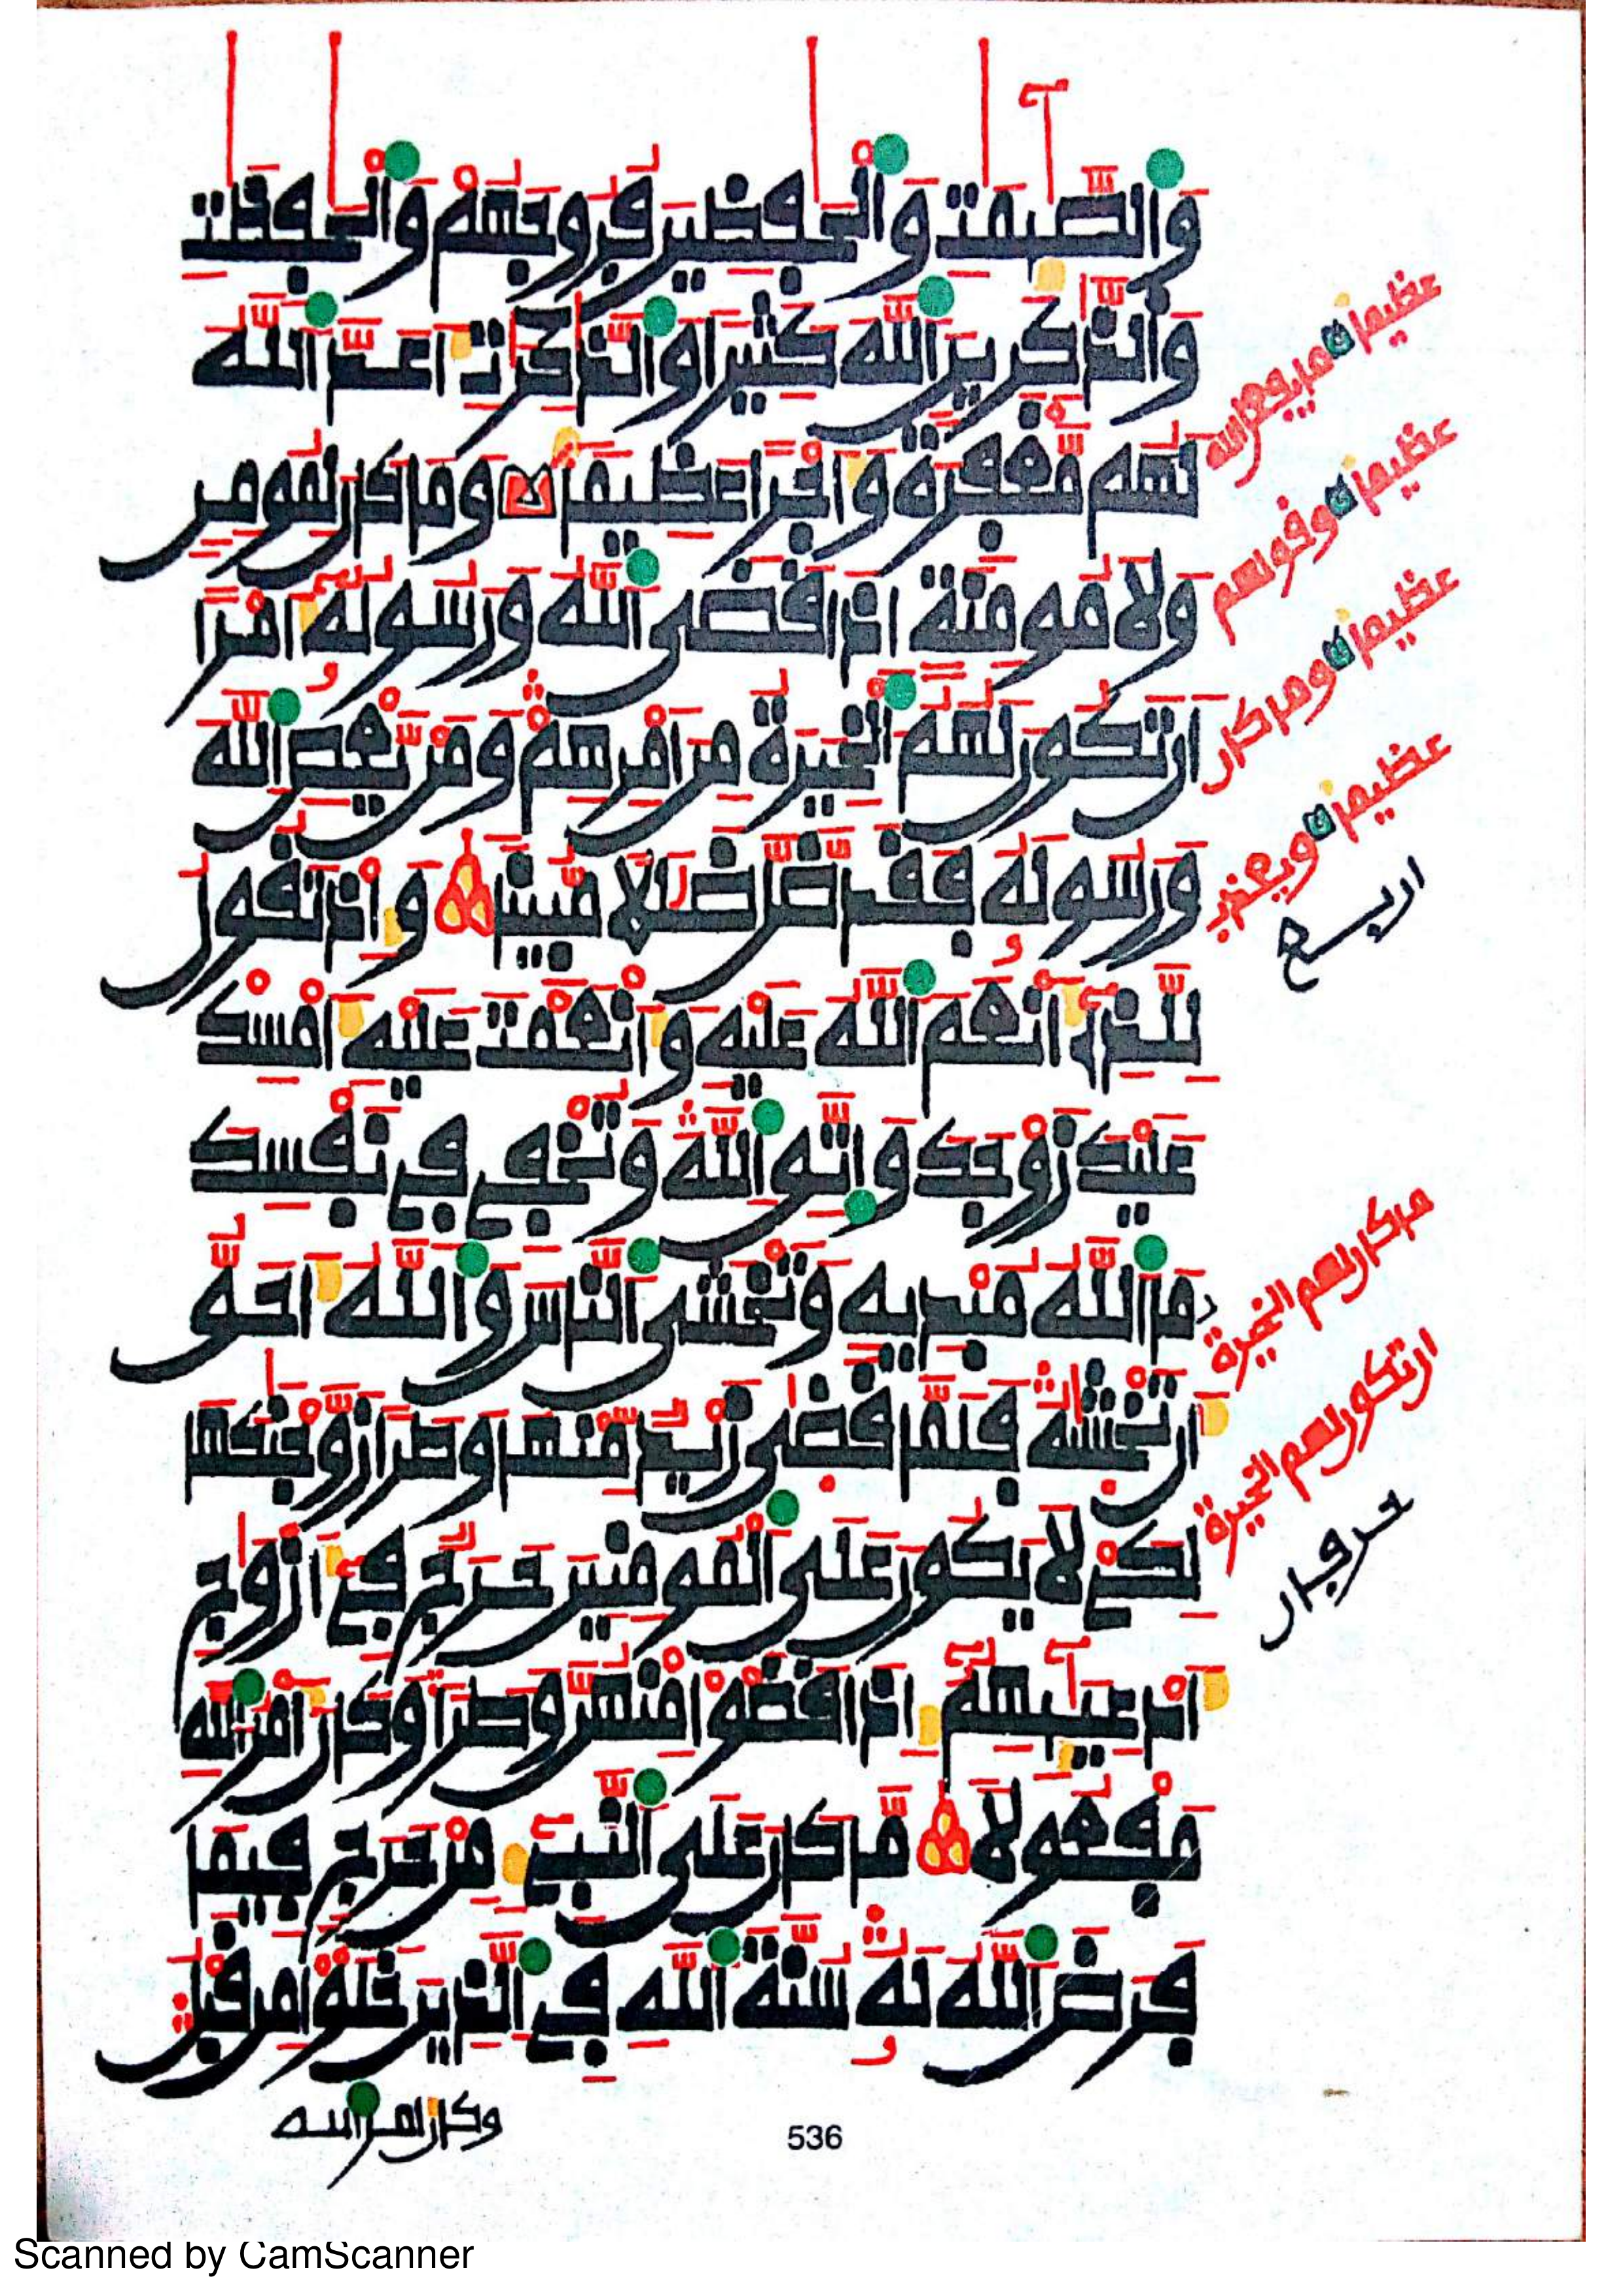 وَالصَّٰٓئِمَٰتِ وَالْحَٰفِظِينَ فُرُوجَهُمْ وَالْحَٰفِظَٰتِ
وَالذَّٰكِرِينَ اَللَّهَ كَثِيرًا وَالذَّٰكِرَٰتِ أَعَدَّ اَللَّهُ
لَهُم مَّغْفِرَةً وَأَجْرًا عَظِيمًا وَمَا كَانَ لِمُومِنٍ
وَلَا مُومِنَةٍ اِذَا قَضَى اَللَّهُ وَرَسُولُهُۥٓ أَمْرًا
اَن تَكُونَ لَهُمُ اُلْخِيَرَةُ مِنَ اَمْرِهِمْ وَمَنْ يَّعْصِ اِللَّهَ
وَرَسُولَهُۥ فَقَد ضَّلَّ ضَلَٰلًا مُّبِينًا وَإِذْ تَقُولُ
لِلَّذِىٓ أَنْعَمَ اَللَّهُ عَلَيْهِ وَأَنْعَمْتَ عَلَيْهِ أَمْسِكْ
عَلَيْكَ زَوْجَكَ وَاتَّقِ اِللَّهَ وَتُخْفِى فِى نَفْسِكَ
مَا اَللَّهُ مُبْدِيهِ وَتَخْشَى اَلنَّاسَ وَاللَّهُ أَحَقُّ
أَن تَخْشَىٰهُ فَلَمَّا قَضَىٰ زَيْدٌ مِّنْهَا وَطَرًا زَوَّجْنَٰكَهَا
لِكَىْ لَا يَكُونَ عَلَى اَلْمُومِنِينَ حَرَجٌ فِىٓ أَزْوَٰجِ
أَدْعِيَآئِهِمُۥٓ إِذَا قَضَوْا مِنْهُنَّ وَطَرًا وَكَانَ أَمْرُ اُللَّهِ
مَفْعُولًا مَّا كَانَ عَلَى اَلنَّبِىٓءِ مِنْ حَرَجٍ فِيمَا
فَرَضَ اَللَّهُ لَهُۥ سُنَّةَ اَللَّهِ فِى اِلَّذِينَ خَلَوْا مِن قَبْلُ
وكان أمر الله
536
من كان لهم الخيرة
ان تكون لهم الخيرة
Scanned by CamScanner